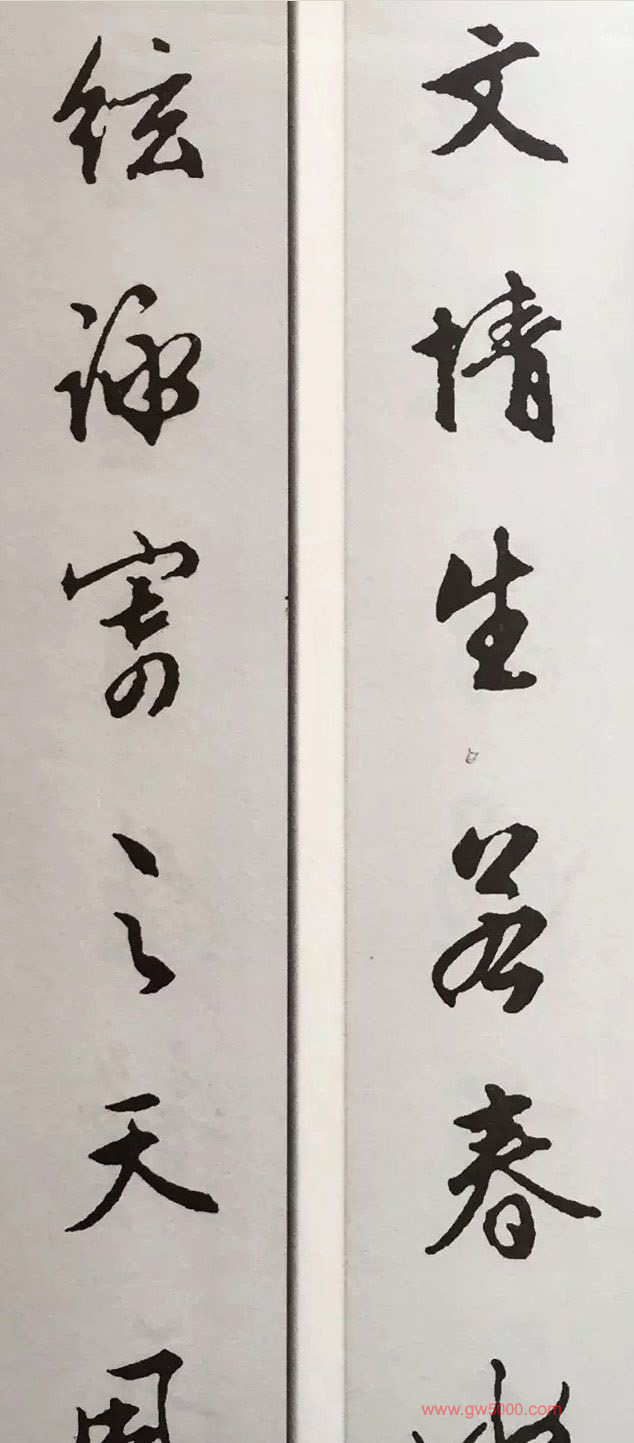 文情生若春
絃詠寄之天
www.gw5000.com